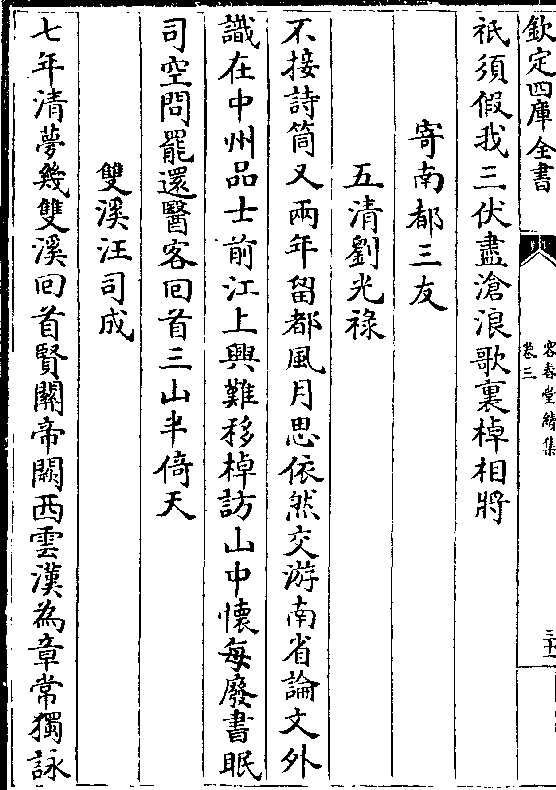 欽定四庫全書
容春堂續集
卷三
三十一
祇須假我三伏盡滄浪歌裏棹相將
寄南都三友
五清劉光祿
不接詩筒又兩年留都風月思依然交游南省論文外
識在中州品士前江上興難移棹訪山中懷每廢書眠
司空問罷還醫客回首三山半倚天
雙溪汪司成
七年清夢幾雙溪回首賢關帝闕西雲漢為章常獨詠